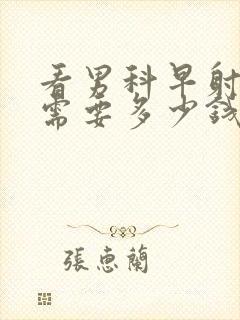 看男科早射
需要多少钱
張惠蘭